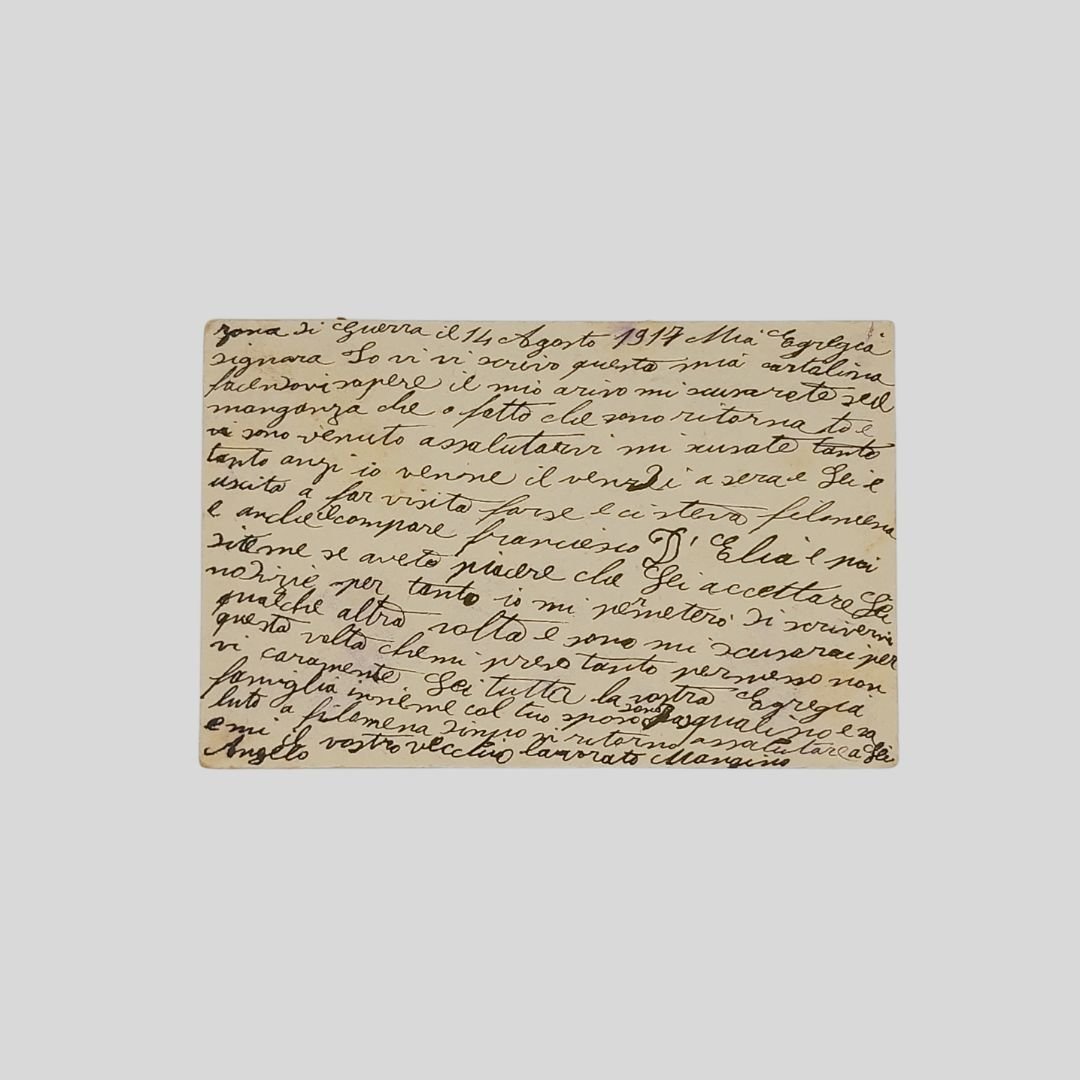 zona di Guerra il 14 Agosto 1917 Mia Egregia
signara Io vi vi scrivo questa mia cartalina
facendovi sapere il mio arivo mi scusarate sed
manganza che o fatto che sono ritornato e
vi sono venuto assalutarvi mi scusate tanto
tanto anzi io venine il venrdi a sera e Lei e
uscita a far visita forse e ci steva filomena
e anche il compare francesco D' Elia e poi
siteme se aveto piacere che Lei accettare Lei
nodizie per tanto io mi permeterò di scrivervi
qualche altra volta e sono mi scusarai per
questa volta che mi preso tanto permesso non
vi caramente Lei tutta la vostra Egregia
famiglia insieme col tuo sposo sono Pasqualino e sa
luto a filomena dinuo vi ritorno assalutare a Lei
e mi il vostro vecchio lavorato Mangino
Angelo